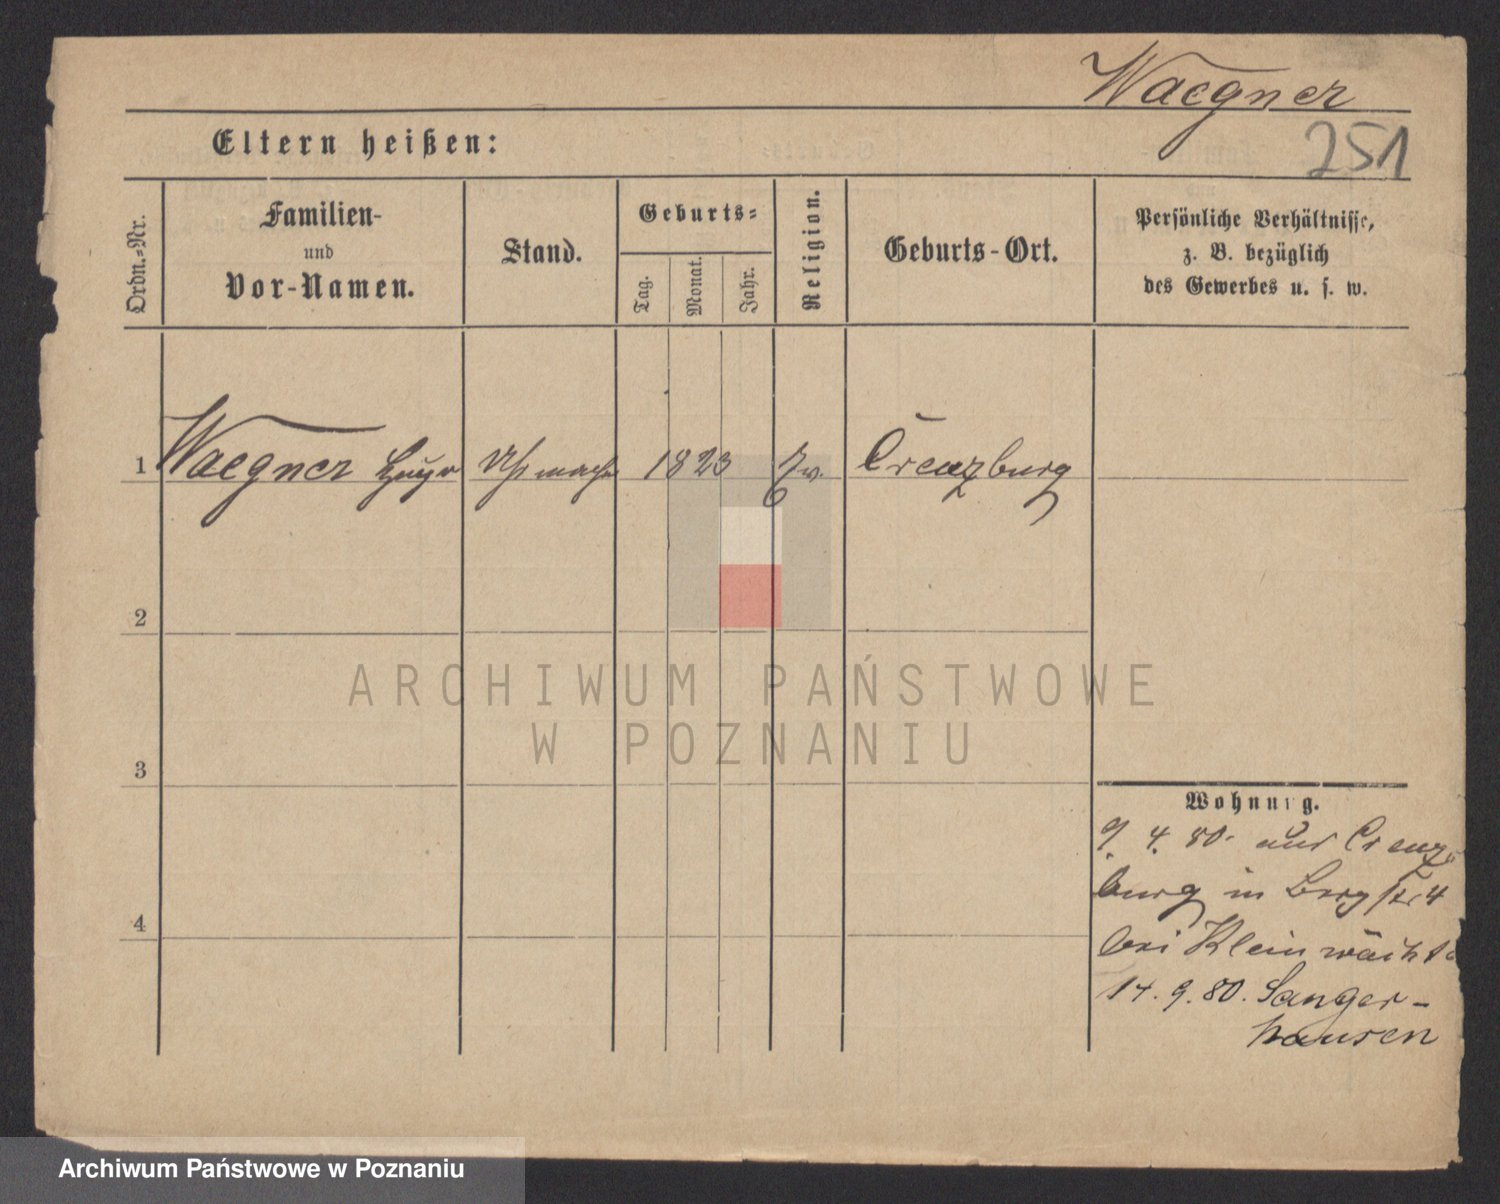 Waegner
251
Eltern heißen:
Ordn.-Nr.
Familien-
und
Vor-Namen.
Stand.
Geburts-
Tag.
Monat.
Jahr.
Religion.
Geburts-Ort.
Persönliche Verhältnisse,
z. B. bezüglich
des Gewerbes u. s. w.
1 Waegner Hugo Uhrmacher 1823 Creuzburg
2
3
4
Wohnung.
9. 4. 80. aus Creuz-
burg in Bergstr. 4
bei Kleinwächter
14. 9. 80. Sanger-
hausen
ARCHIWUM PAŃSTWOWE
W POZNANIU
Archiwum Państwowe w Poznaniu